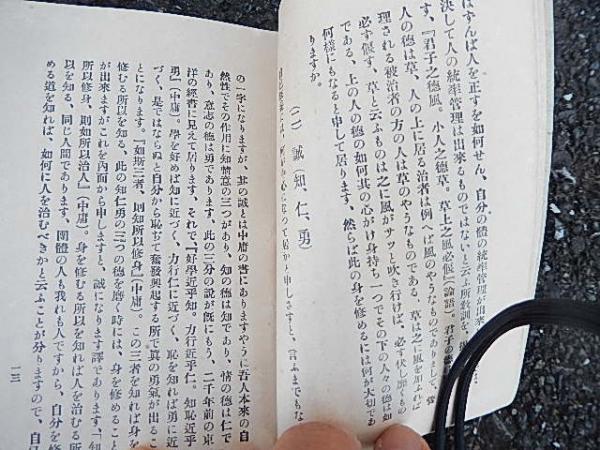 はずんば人を正すを如何せん、自分の體の統率管理が出來
決して人の統率管理は出來るものではないと云ふ敎訓を、
す。『君子之德風。小人之德草。草上之風必偃』(論語)。君子の德
人の德は草、人の上に居る治者は例へば風のやうなものでありまして、
理される被治者の方の人は草のやうなものである、草は之に風が加はれば
必ず偃す、草と云ふものは之に風がサッと吹き行けば、必ず伏し靡くもの
である、上の人の德の如何其の心がけ身持ち一つでその下の人々の德は如
何樣にもなると申して居ります。然らば此の身を修めるには何が大切であ
りますか。
(一) 誠(知、仁、勇)
と申しますと、言ふまでもな
の一字になりますが、其の誠とは中庸の書にありますやうに吾人本來の自
然性でその作用に知情意の三つがあり、知の德は知であり、情の德は仁で
あり、意志の德は勇であります。此の三分の說が旣にもう、二千年前の東
洋の經書に見えて居ります、それで『好學近乎知。力行近乎仁。知恥近乎
勇』(中庸)。學を好めば知に近づく、力行仁に近づく、恥を知れば勇に近
づく、是ではならぬと自分から恥ぢて奮發興起する所で眞の勇氣が出るこ
とになります。『如斯三者、則知所以修身』(中庸)。この三者を知れば身を
修むる所以を知る、此の知仁勇の三つの德を磨く時には、身を修めること
が出來ますがこれを內面から申しますと、誠になります譯であります、『知
所以修身、則如所以治人』(中庸)。身を修むる所以を知れば人を治むる所
以を知る、同じ人間であります、團體の人も我れも人ですから、自分を修
める道を知れば、如何に人を治むべきかと云ふことが分りますので、自
一三